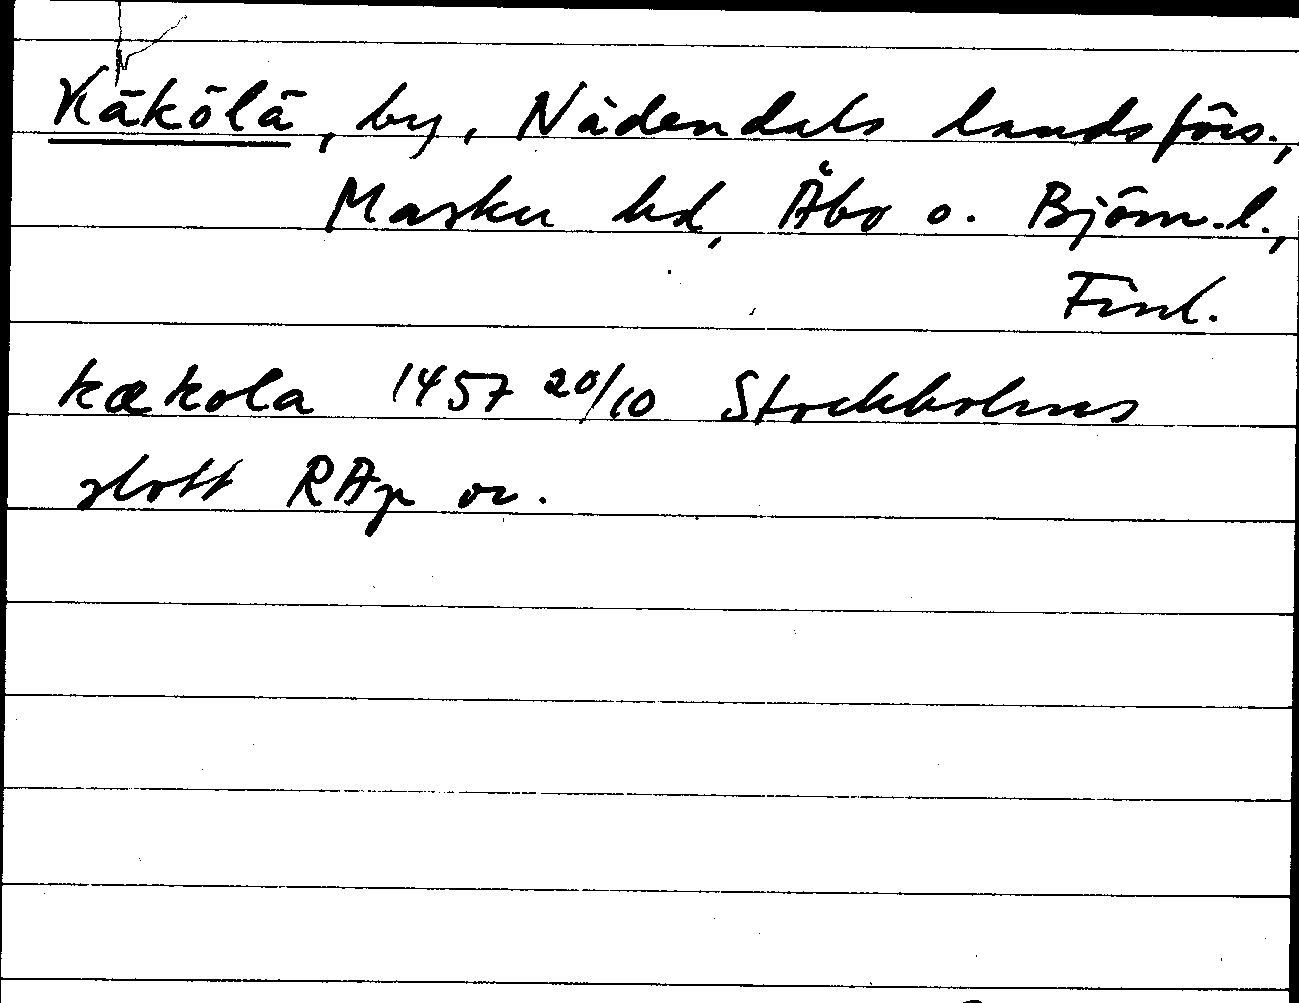 Käkölä, by, Nådendals landsförs.,
Masku hd, Åbo o. Björn.l.,
Finl.
kækola 1457 20/10 Stockholms
slott RAp or.